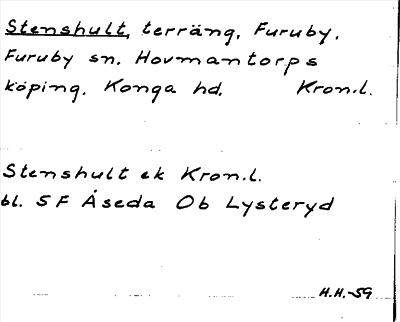 Stenshult, terräng, Furuby,
Furuby sn. Hovmantorps
köping. Konga hd. Kron.l.
Stenshult ek Kron.l.
bl. 5F Åseda Ob Lysteryd
H.H.-59